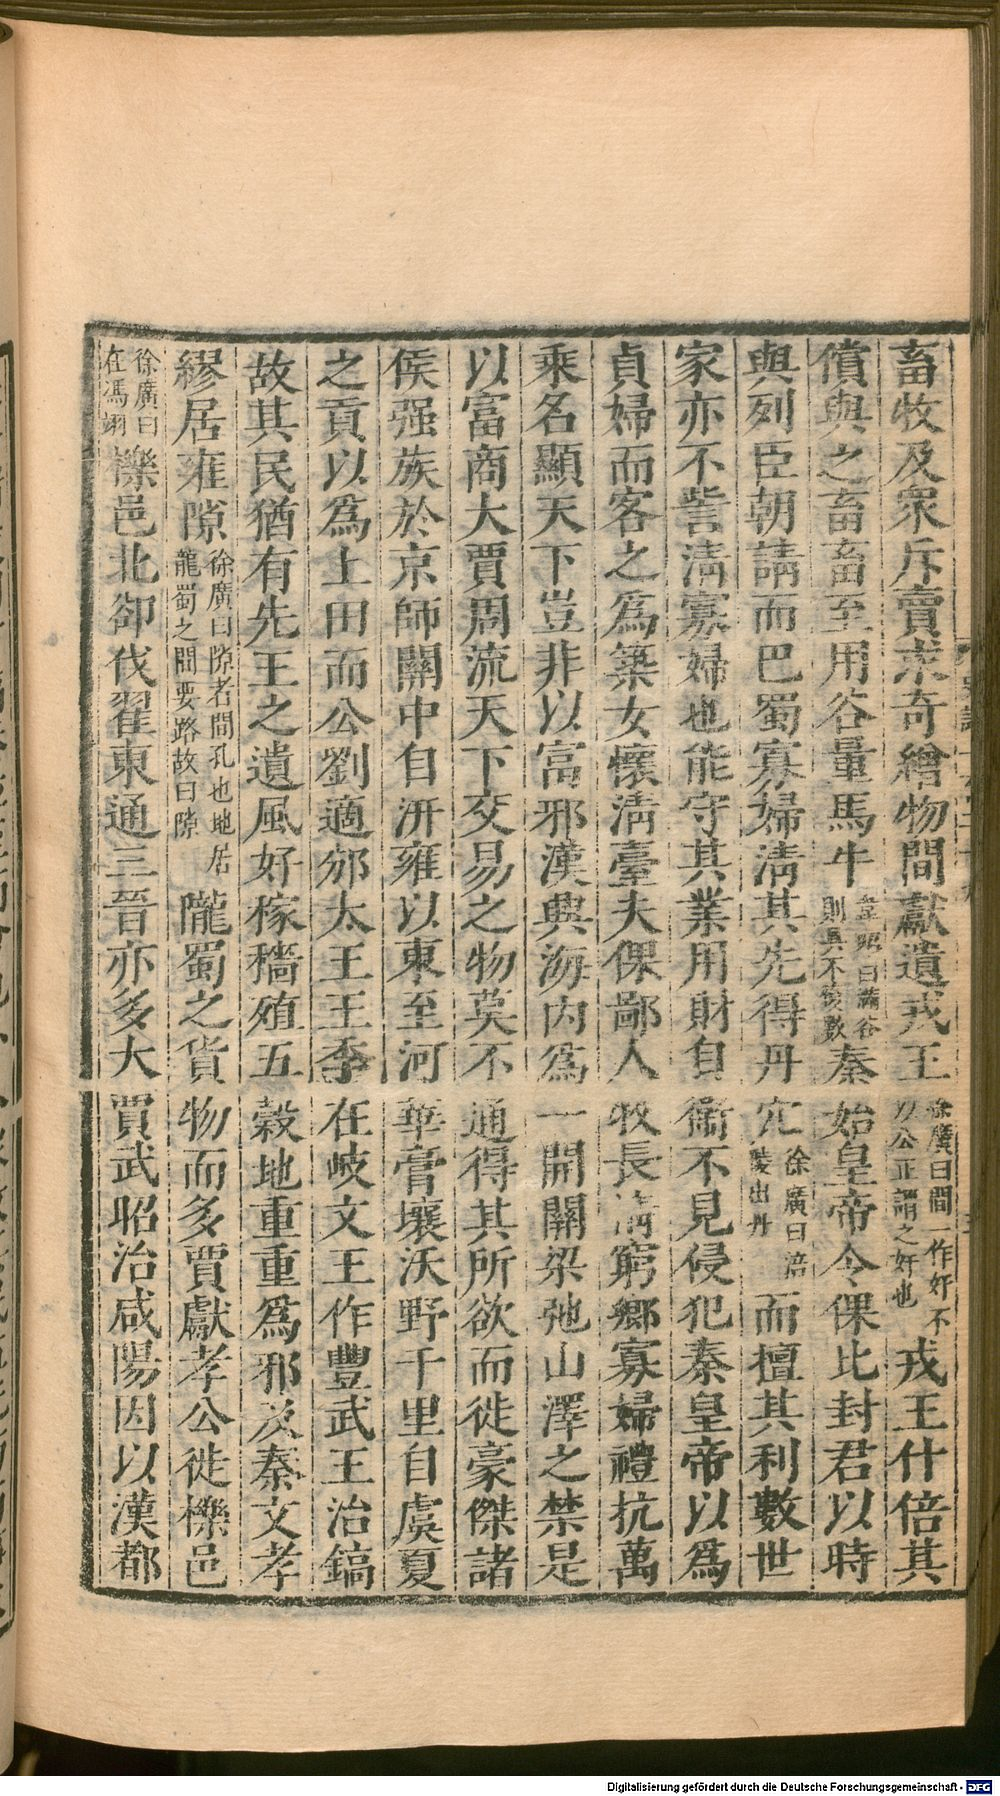 畜牧及衆斥賣求奇繒物間獻遺戎王徐廣曰間一作奸不以公正謂之奸也戎王什倍其
償與之畜畜至用谷量馬牛韋昭曰滿谷則具不復數秦始皇帝令倮比封君以時
與列臣朝請而巴蜀寡婦清其先得丹穴徐廣曰涪陵出丹而擅其利數世
家亦不訾清寡婦也能守其業用財自衞不見侵犯秦皇帝以爲
貞婦而客之爲築女懷清臺夫倮鄙人牧長清窮鄉寡婦禮抗萬
乘名顯天下豈非以富邪漢興海内爲一開關梁弛山澤之禁是
以富商大賈周流天下交易之物莫不通得其所欲而徙豪傑諸
侯强族於京師關中自汧雍以東至河華膏壤沃野千里自虞夏
之貢以爲上田而公劉適邠太王王季在岐文王作豐武王治鎬
故其民猶有先王之遺風好稼穡殖五穀地重重爲邪及秦文孝
繆居雍隙徐廣曰隙者間孔也地居隴蜀之間要路故曰隙隴蜀之貨物而多賈獻孝公徙櫟邑
徐廣曰在馮翊櫟邑北卻伐翟東通三晉亦多大賈武昭治咸陽因以漢都
Digitalisierung gefördert durch die Deutsche Forschungsgemeinschaft - DFG